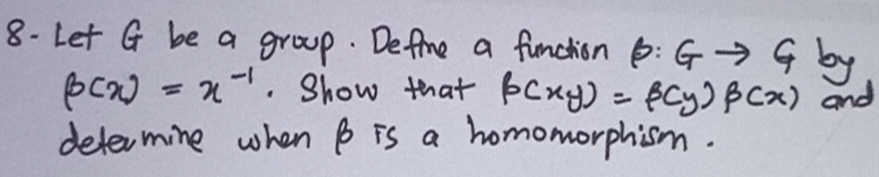 8- Let G be a group. Define a function β: G → G by
β(x) = x⁻¹. Show that β(xy) = β(y) β(x) and
determine when β is a homomorphism.